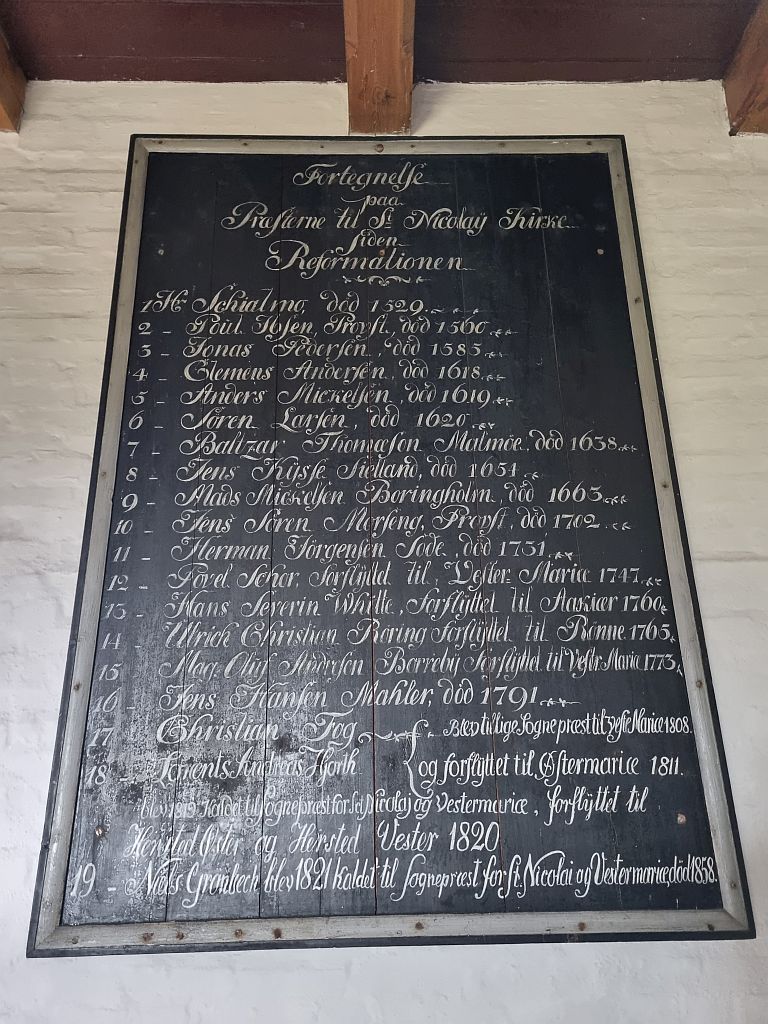 Fortegnelse
paa
Præsterne til St Nicolaÿ Kirke
siden
Reformationen
1 Hr Schialmo, död 1529.
2 - Poul Ibsen, Provst, död 1560
3 - Jonas Pedersen, död 1585
4 - Clemens Andersen, död 1618
5 - Anders Mickelsen, död 1619
6 - Sören Larsen, död 1620
7 - Baltzar Thomæson Malmöe, död 1638
8 - Jens Kysse Sielland, död 1654
9 - Mads Mickelsen Boringholm, död 1663
10 - Jens Sören Morsing, Provst, död 1702
11 - Herman Jörgensen Sode, död 1731
12 - Povel Schor, forflyttet til Vester-Mariæ 1747
13 - Hans Severin Whitte, forflyttet til Aaskiær 1760
14 - Ulrich Christian Roring forflyttet til Rönne 1765
15 Mag: Oluf Andersen Barreby forflyttet til Vestr Maria 1773
16 - Jens Hansen Mahler, död 1791
17 Christian Fog - Blev tillige Sognepræst til Vestre Marice 1808.
18 - Lorents Andreas Hjorth og forflyttet til Østermarice 1811.
blev 1813 Kaldet til Sognepræst for St Nicolaj og Vestermarice, forflyttet til
Hersted Øster og Hersted Vester 1820
19 - Niels Grønbech blev 1821 kaldet til sognepræst for St. Nicolai og Vestermarice, död 1858.